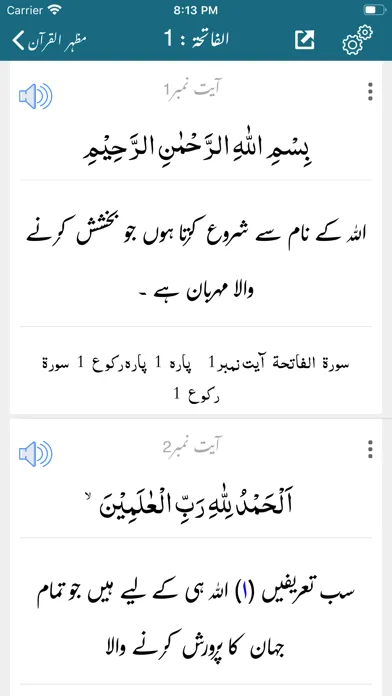 Carrier 8:13 PM
مظہر القرآن الفاتحۃ : 1
آیت نمبر1
بِسْمِ اللّٰهِ الرَّحْمٰنِ الرَّحِیْمِ
اللہ کے نام سے شروع کرتا ہوں جو بخشش کرنے
والا مہربان ہے ۔
سورۃ الفاتحۃ آیت نمبر1 پارہ 1 پارہ رکوع 1 سورۃ
رکوع 1
آیت نمبر2
اَلْحَمْدُ لِلّٰهِ رَبِّ الْعٰلَمِیْنَ ۙ
سب تعریفیں (۱) اللہ ہی کے لیے ہیں جو تمام
جہان کا پرورش کرنے والا